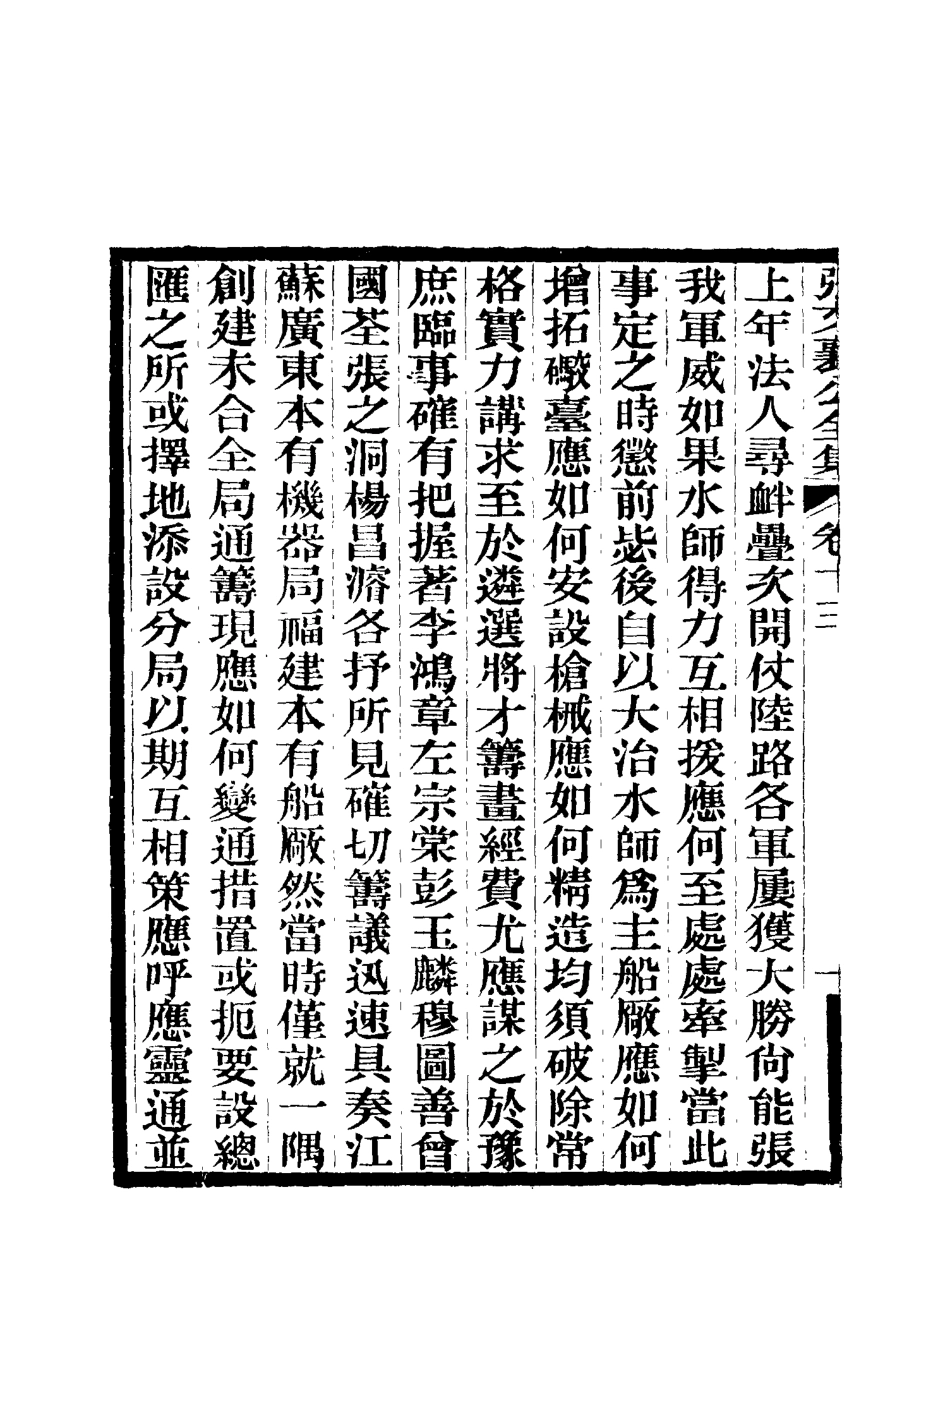 張文襄公全集 卷十三 十
上年法人尋衅疊次開仗陸路各軍屢獲大勝尙能張
我軍威如果水師得力互相援應何至處處牽掣當此
事定之時懲前毖後自以大治水師爲主船廠應如何
增拓礮臺應如何安設槍械應如何精造均須破除常
格實力講求至於遴選將才籌畫經費尤應謀之於豫
庶臨事確有把握著李鴻章左宗棠彭玉麟穆圖善曾
國荃張之洞楊昌濬各抒所見確切籌議迅速具奏江
蘇廣東本有機器局福建本有船廠然當時僅就一隅
創建未合全局通籌現應如何變通措置或扼要設總
匯之所或擇地添設分局以期互相策應呼應靈通並